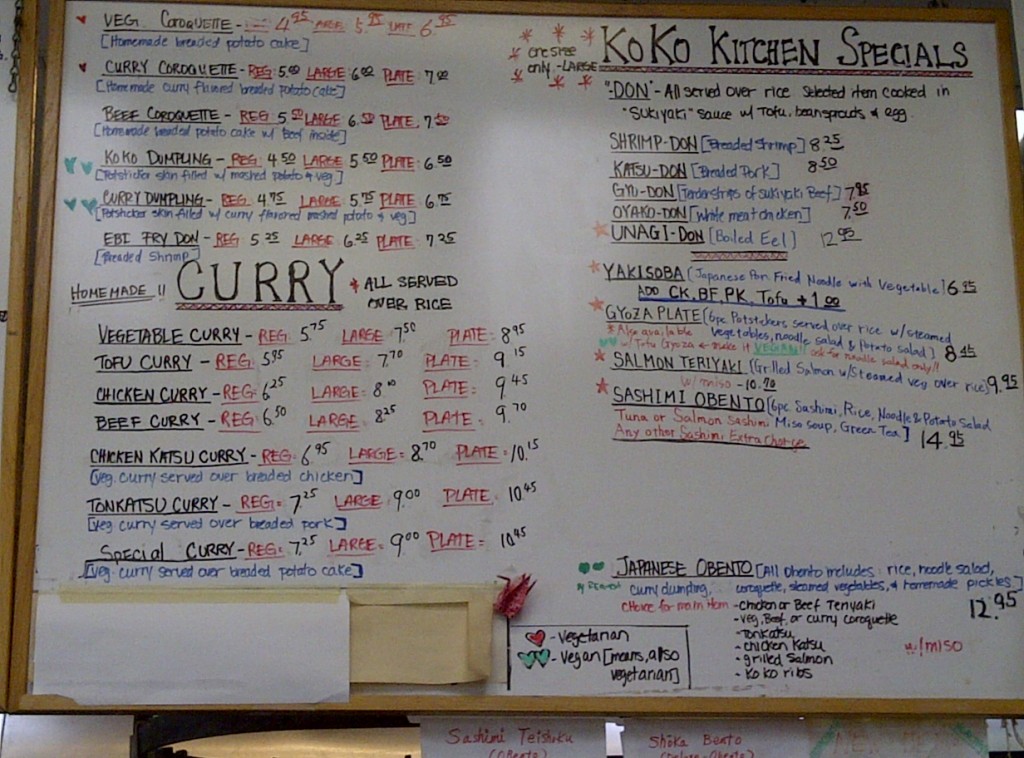 VEG. COROQUETTE - 4.95 LARGE 5.95 6.95
[Homemade breaded potato cake]
CURRY COROQUETTE - REG: 5.00 LARGE 6.00 PLATE 7.00
[Homemade curry flavored breaded potato cake]
BEEF COROQUETTE - REG: 5.50 LARGE 6.50 PLATE 7.50
[Homemade breaded potato cake w/ Beef inside]
KOKO DUMPLING - REG: 4.50 LARGE 5.50 PLATE: 6.50
[Potsticker skin filled w/ mashed potato & veg]
CURRY DUMPLING - REG: 4.75 LARGE 5.75 PLATE: 6.75
[Potsticker skin filled w/ curry flavored mashed potato & veg]
EBI FRY DON - REG: 5.25 LARGE: 6.25 PLATE: 7.25
[Breaded Shrimp]
HOMEMADE!! CURRY * ALL SERVED
OVER RICE
VEGETABLE CURRY - REG: 5.75 LARGE: 7.50 PLATE: 8.95
TOFU CURRY - REG: 5.95 LARGE: 7.70 PLATE: 9.15
CHICKEN CURRY - REG: 6.25 LARGE: 8.00 PLATE: 9.45
BEEF CURRY - REG: 6.50 LARGE: 8.25 PLATE: 9.70
CHICKEN KATSU CURRY - REG: 6.95 LARGE = 8.70 PLATE = 10.15
[veg. curry served over breaded chicken]
TONKATSU CURRY - REG: 7.25 LARGE: 9.00 PLATE: 10.45
[veg curry served over breaded pork]
Special CURRY - REG: 7.25 LARGE: 9.00 PLATE = 10.45
[veg. curry served over breaded potato cake]
one size
only - LARGE
KOKO KITCHEN SPECIALS
"-DON" - All served over rice Selected item cooked in
"Sukiyaki" sauce w/ Tofu, beansprouts & egg.
SHRIMP-DON [Breaded Shrimp] 8.25
KATSU-DON [Breaded Pork] 8.50
GYU-DON [Tenderstrips of sukiyaki Beef] 7.95
OYAKO-DON [White meat chicken] 7.50
UNAGI-DON [Boiled Eel] 12.95
YAKISOBA (Japanese Pan Fried Noodle with Vegetable) 6.95
ADD CK, BF, PK, Tofu + 1.00
GYOZA PLATE (6pc Potstickers, served over rice w/ steamed
vegetables, noodle salad & Potato salad) 8.45
* Also available
w/ Tofu Gyoza & make it VEGAN!! ask for noodle salad only!!
SALMON TERIYAKI (Grilled Salmon w/ Steamed veg over rice) 9.95
w/ miso - 10.70
SASHIMI OBENTO [6pc Sashimi, Rice, Noodle & Potato Salad
Miso soup, Green Tea] 14.95
Tuna or Salmon sashimi
Any other Sashimi Extra charge
JAPANESE OBENTO [All Obento includes: rice, noodle salad,
curry dumpling, coroquette, steamed vegetables, & homemade pickles]
12.95
choice for main item - chicken or Beef Teriyaki
- Veg, Beef, or curry coroquette
- Tonkatsu
- Chicken Katsu
- grilled Salmon
- KoKo ribs
w/ miso
- Vegetarian
- Vegan [means, also
vegetarian]
Sashimi Teishoku
(Obento)
Shoka Bento
NEW MENU